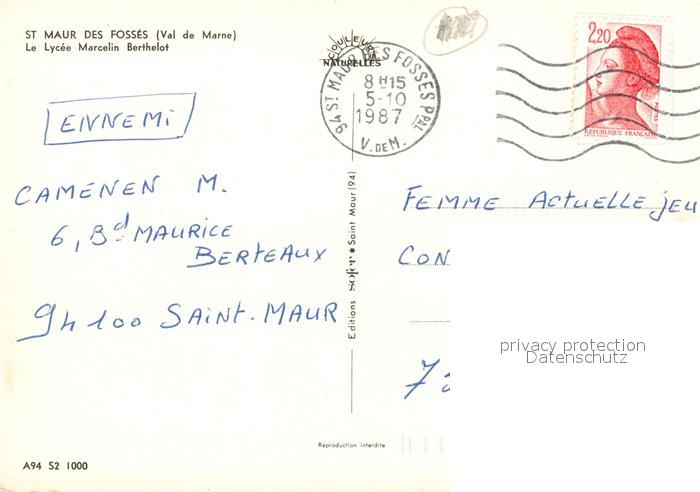 ST MAUR DES FOSSÉS (Val de Marne)
Le Lycée Marcelin Berthelot
COULEURS
NATURELLES
94 ST MAUR DES FOSSES PPAL
8H15
5-10
1987
V. DE M.
2,20
POSTES
RÉPUBLIQUE FRANÇAISE
ENNEMI
CAMENEN M.
6, Bd MAURICE
BERTEAUX
94100 SAINT-MAUR
Editions sofer * Saint Maur (94)
FEMME ACTUELLE jeu
CON
privacy protection
Datenschutz
Reproduction interdite
A94 S2 1000